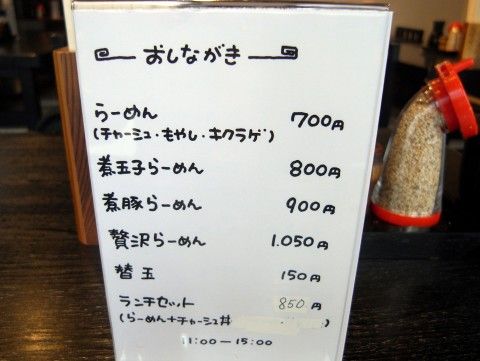 おしながき
らーめん 700円
(チャーシュ・もやし・キクラゲ)
煮玉子らーめん 800円
煮豚らーめん 900円
贅沢らーめん 1.050円
替玉 150円
ランチセット 850円
(らーめん+チャーシュ丼 )
11:00-15:00